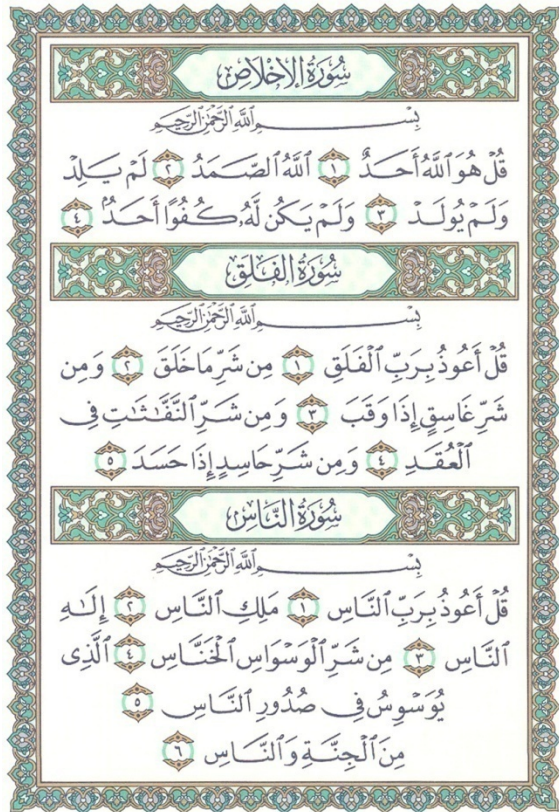 سُورَةُ الإِخْلَاصِ
بِسْمِ ٱللَّهِ ٱلرَّحْمَٰنِ ٱلرَّحِيمِ
قُلْ هُوَ ٱللَّهُ أَحَدٌ ١ ٱللَّهُ ٱلصَّمَدُ ٢ لَمْ يَلِدْ
وَلَمْ يُولَدْ ٣ وَلَمْ يَكُن لَّهُۥ كُفُوًا أَحَدٌۢ ٤
سُورَةُ الْفَلَقِ
بِسْمِ ٱللَّهِ ٱلرَّحْمَٰنِ ٱلرَّحِيمِ
قُلْ أَعُوذُ بِرَبِّ ٱلْفَلَقِ ١ مِن شَرِّ مَا خَلَقَ ٢ وَمِن
شَرِّ غَاسِقٍ إِذَا وَقَبَ ٣ وَمِن شَرِّ ٱلنَّفَّٰثَٰتِ فِى
ٱلْعُقَدِ ٤ وَمِن شَرِّ حَاسِدٍ إِذَا حَسَدَ ٥
سُورَةُ النَّاسِ
بِسْمِ ٱللَّهِ ٱلرَّحْمَٰنِ ٱلرَّحِيمِ
قُلْ أَعُوذُ بِرَبِّ ٱلنَّاسِ ١ مَلِكِ ٱلنَّاسِ ٢ إِلَٰهِ
ٱلنَّاسِ ٣ مِن شَرِّ ٱلْوَسْوَاسِ ٱلْخَنَّاسِ ٤ ٱلَّذِى
يُوَسْوِسُ فِى صُدُورِ ٱلنَّاسِ ٥
مِنَ ٱلْجِنَّةِ وَٱلنَّاسِ ٦